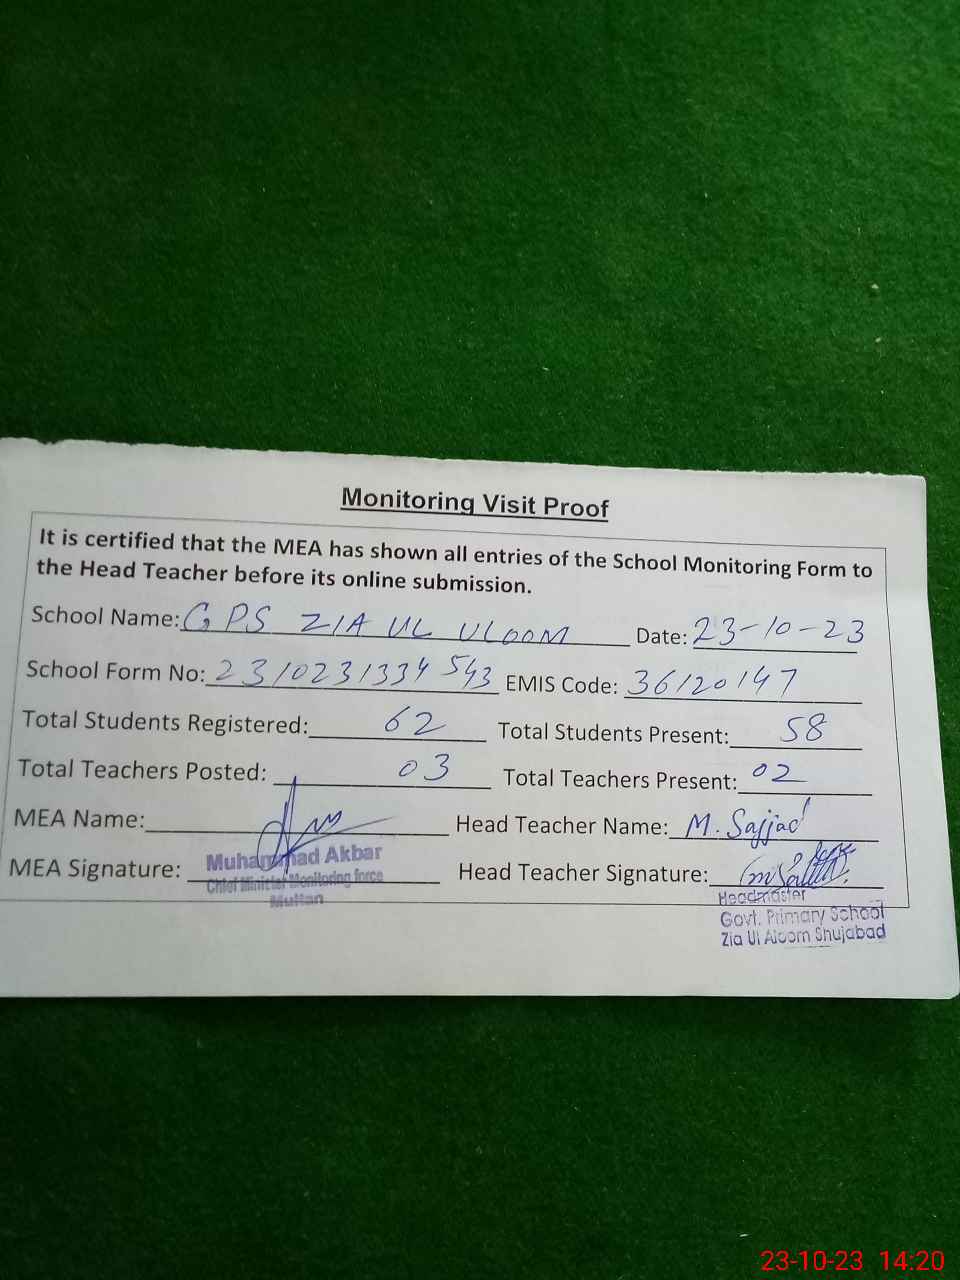 Monitoring Visit Proof
It is certified that the MEA has shown all entries of the School Monitoring Form to
the Head Teacher before its online submission.
School Name: GPS ZIA UL ULOOM Date: 23-10-23
School Form No: 2310231334543 EMIS Code: 36120147
Total Students Registered: 62 Total Students Present: 58
Total Teachers Posted: 03 Total Teachers Present: 02
MEA Name: Head Teacher Name: M. Sajjad
MEA Signature: Head Teacher Signature:
Muhammad Akbar
Chief Minister Monitoring force
Multan
Headmaster
Govt. Primary School
Zia Ul Aloom Shujabad
23-10-23 14:20